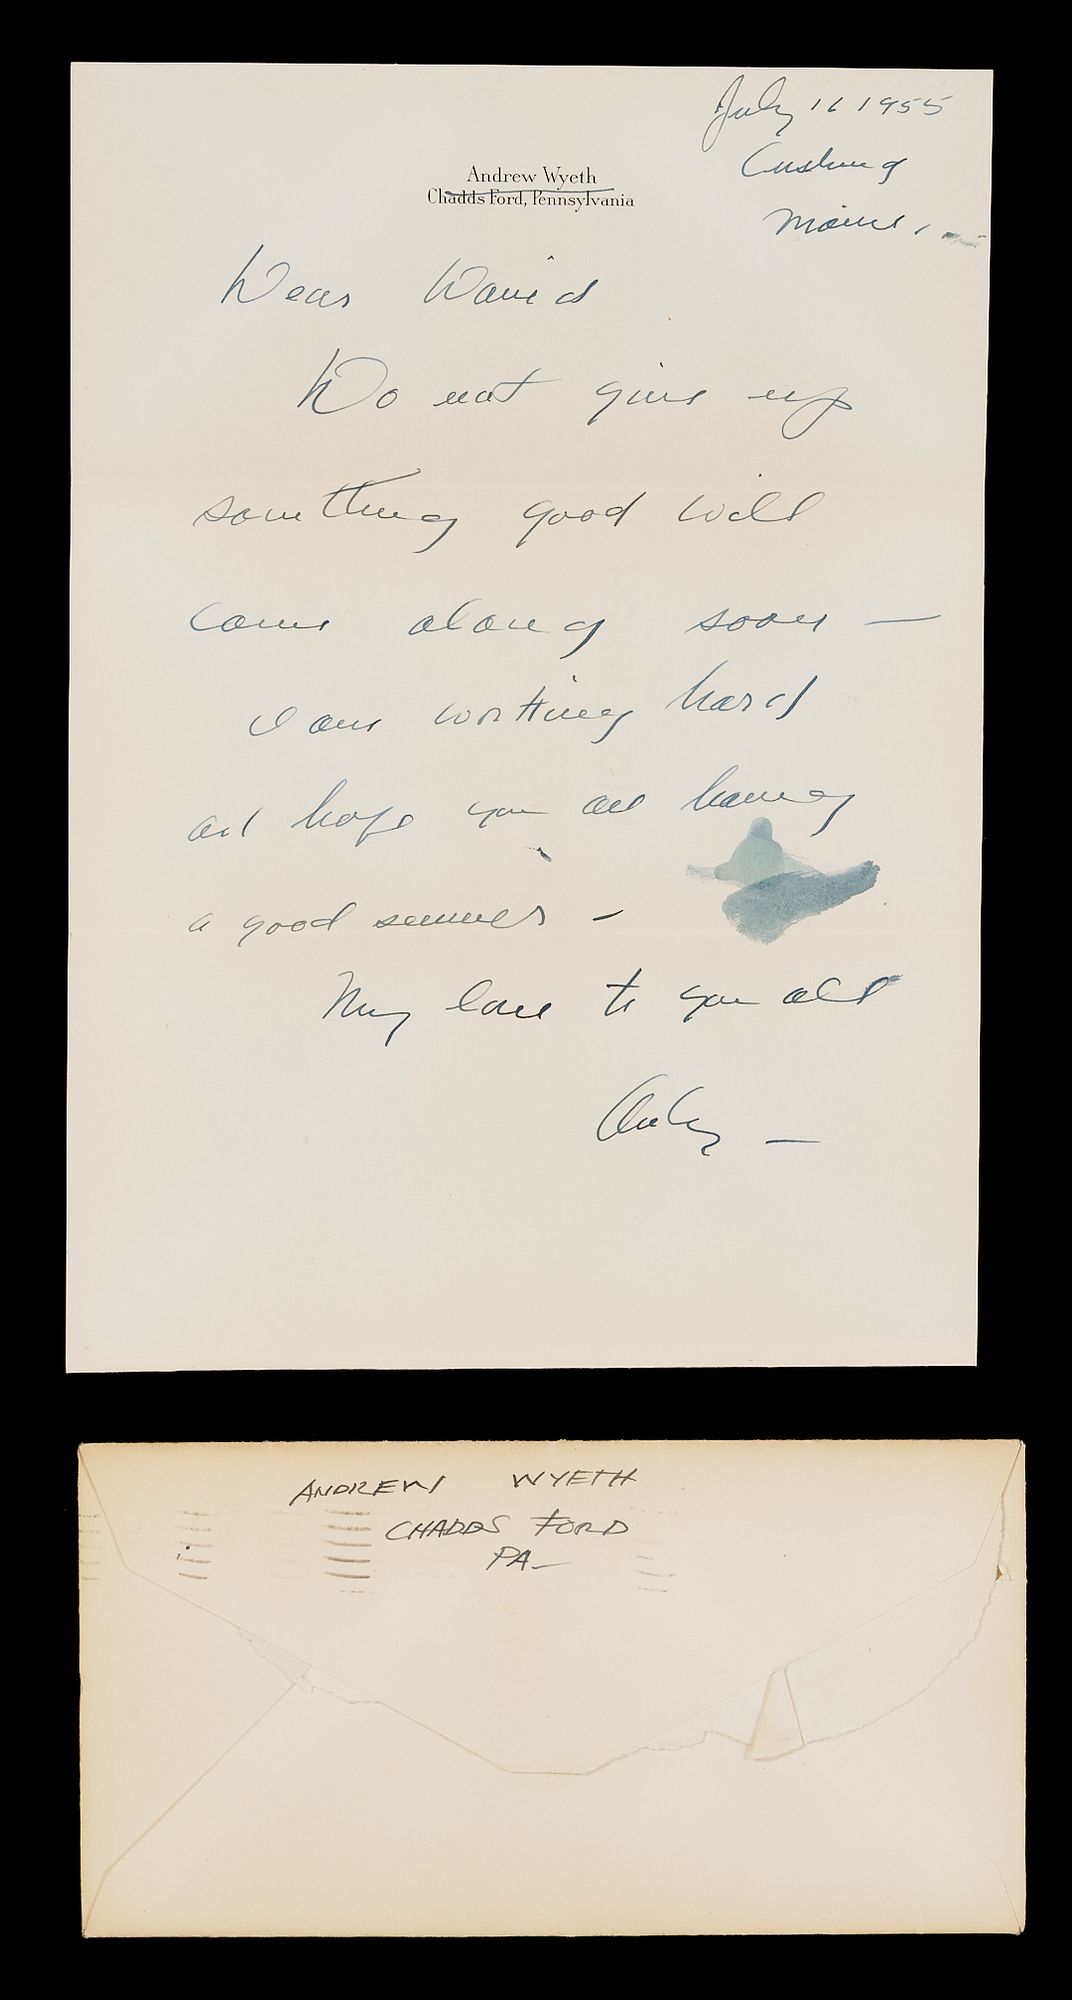 July 16 1955
Cushing
Maine.
Andrew Wyeth
Chadds Ford, Pennsylvania
Dear David
Do not give up
something good will
come along soon —
I am working hard
and hope you are having
a good summer -
My love to you all
Andy —
ANDREW WYETH
CHADDS FORD
PA-